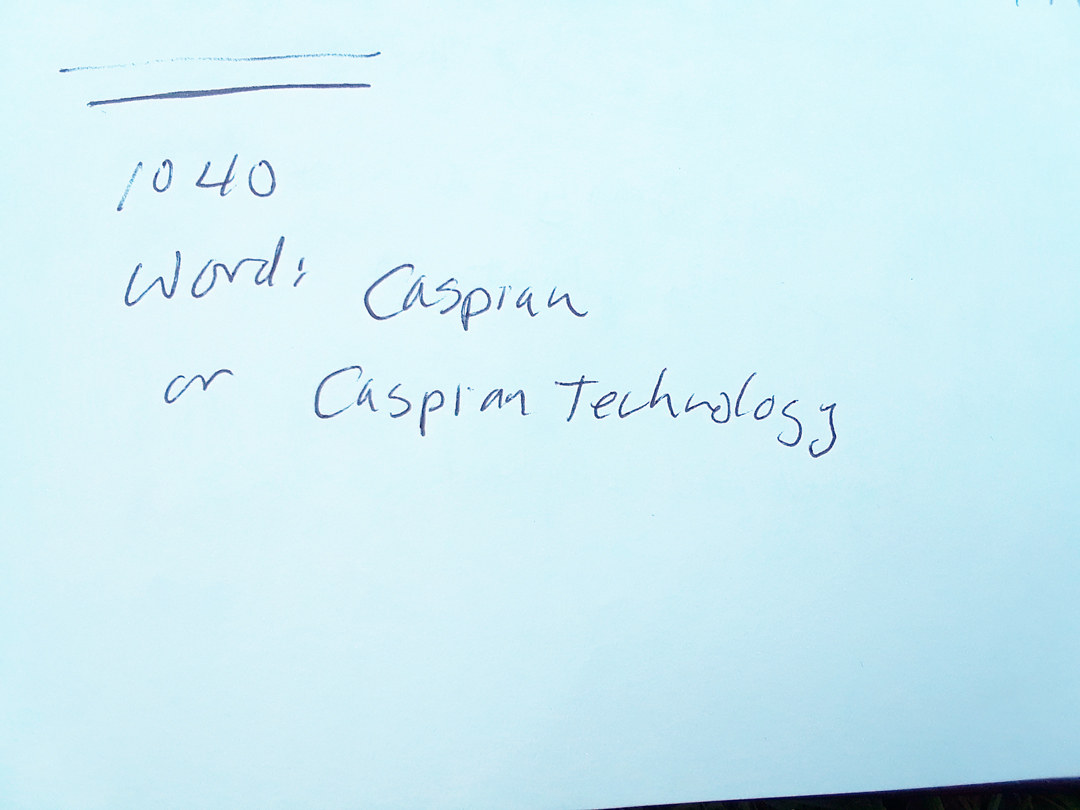 1040
Word: Caspian
or Caspian Technology